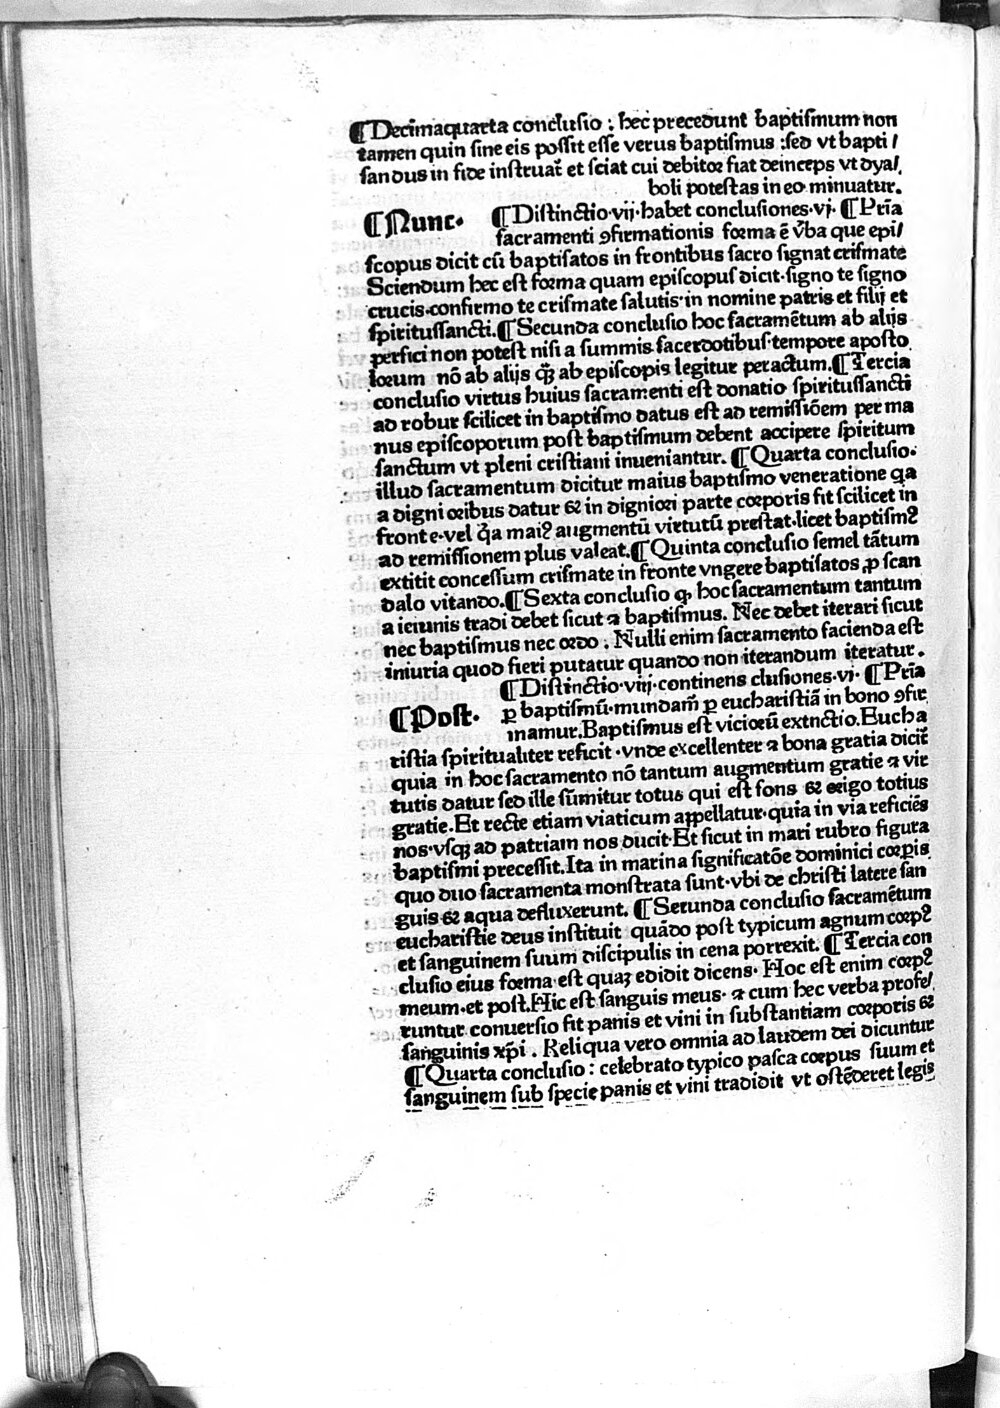 ¶Decimaquarta conclusio : hec precedunt baptismum non
tamen quin sine eis possit esse verus baptismus :sed vt bapti /
sandus in fide instruat᷑ et sciat cui debitoꝝ fiat deinceps vt dya/
boli potestas in eo minuatur.
¶Nunc· ¶Distinctio·vij·habet conclusiones·vj· ¶Pri᷑a
sacramenti ꝯfirmationis forma ē v̓ba que epi/
scopus dicit cū baptisatos in frontibus sacro signat crismate
Sciendum hec est forma quam episcopus dicit·signo te signo
crucis·confirmo te crismate salutis·in nomine patris et filij et
spiritussancti.¶Secunda conclusio hoc sacramētum ab alijs
perfici non potest nisi a summis sacerdotibus·tempore aposto
lorum nō ab alijs qꝫ̄ ab episcopis legitur peractum.¶Tercia
conclusio virtus huius sacramenti est donatio spiritussancti
ad robur scilicet in baptismo datus est ad remissiōem per ma
nus episcoporum post baptismum debent accipere spiritum
sanctum vt pleni cristiani inueniantur. ¶Quarta conclusio·
illud sacramentum dicitur maius baptismo veneratione qa
a digni oribus datur & in digniori parte corporis fit scilicet in
fronte·vel q̓a maiꝰ augmentū virtutū prestat·licet baptismꝰ
ad remissionem plus valeat.¶Quinta conclusio semel tātum
extitit concessum crismate in fronte vngere baptisatos ꝓ scan
dalo vitando.¶Sexta conclusio ꝙ hoc sacramentum tantum
a ieiunis tradi debet sicut ⁊ baptismus. Nec debet iterari sicut
nec baptismus nec ordo . Nulli enim sacramento facienda est
iniuria quod fieri putatur quando non iterandum iteratur .
¶Distinctio·viij·continens clusiones·vi· ¶Pri᷑a
¶Post· ꝑ baptismū·mundam᷑ ꝑ eucharistiā in bono ꝯfir
mamur.Baptismus est viciorū extnctio.Eucha
ristia spiritualiter reficit ·vnde excellenter ⁊ bona gratia dicit᷑
quia in hoc sacramento nō tantum augmentum gratie ⁊ vir
tutis datur sed ille sūmitur totus qui est fons & origo totius
gratie.Et recte etiam viaticum appellatur·quia in via reficiēs
nos·vsqꝫ ad patriam nos ducit·Et sicut in mari rubro figura
baptismi precessit.Ita in marina significatōe dominici corꝑis
quo duo sacramenta monstrata sunt·vbi de christi latere san
guis & aqua defluxerunt. ¶Secunda conclusio sacramētum
eucharistie deus instituit quādo post typicum agnum corpꝰ
et sanguinem suum discipulis in cena porrexit. ¶Tercia con
clusio eius forma est quaꝫ edidit dicens· Hoc est enim corpꝰ
meum·et post.Hic est sanguis meus· ⁊ cum hec verba profe/
runtur conuersio fit panis et vini in substantiam corporis &
sanguinis xp̄i . Reliqua vero omnia ad laudem dei dicuntur
¶Quarta conclusio : celebrato typico pasca corpus suum et
sanguinem sub specie panis et vini tradidit vt ostēderet legis